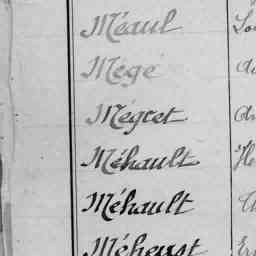 Méaul
Mégé
Mégret
Méhault
Méhault
Méheust